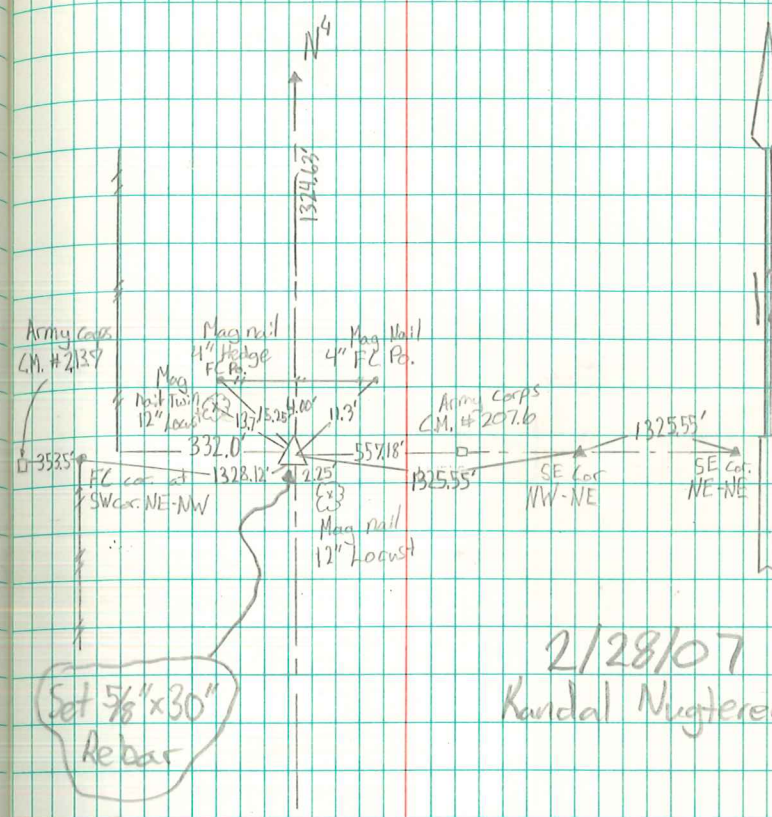 N4
1324.63'
Army Corps
C.M. #2139
Mag nail
4" Hedge
FC Po.
Mag Nail
4" FC Po.
Mag
Nail Twin
12" Locust
13.7'
15.25'
4.00'
11.3'
Army Corps
C.M. # 207.6
1325.55'
353.5'
332.0'
557.18'
FC cor. at
SW cor. NE-NW
1328.12'
2.25'
1325.55'
SE Cor
NW-NE
SE Cor.
NE-NE
Mag nail
12" Locust
Set 5/8" x 30"
Rebar
2/28/07
Kandal Nugtere